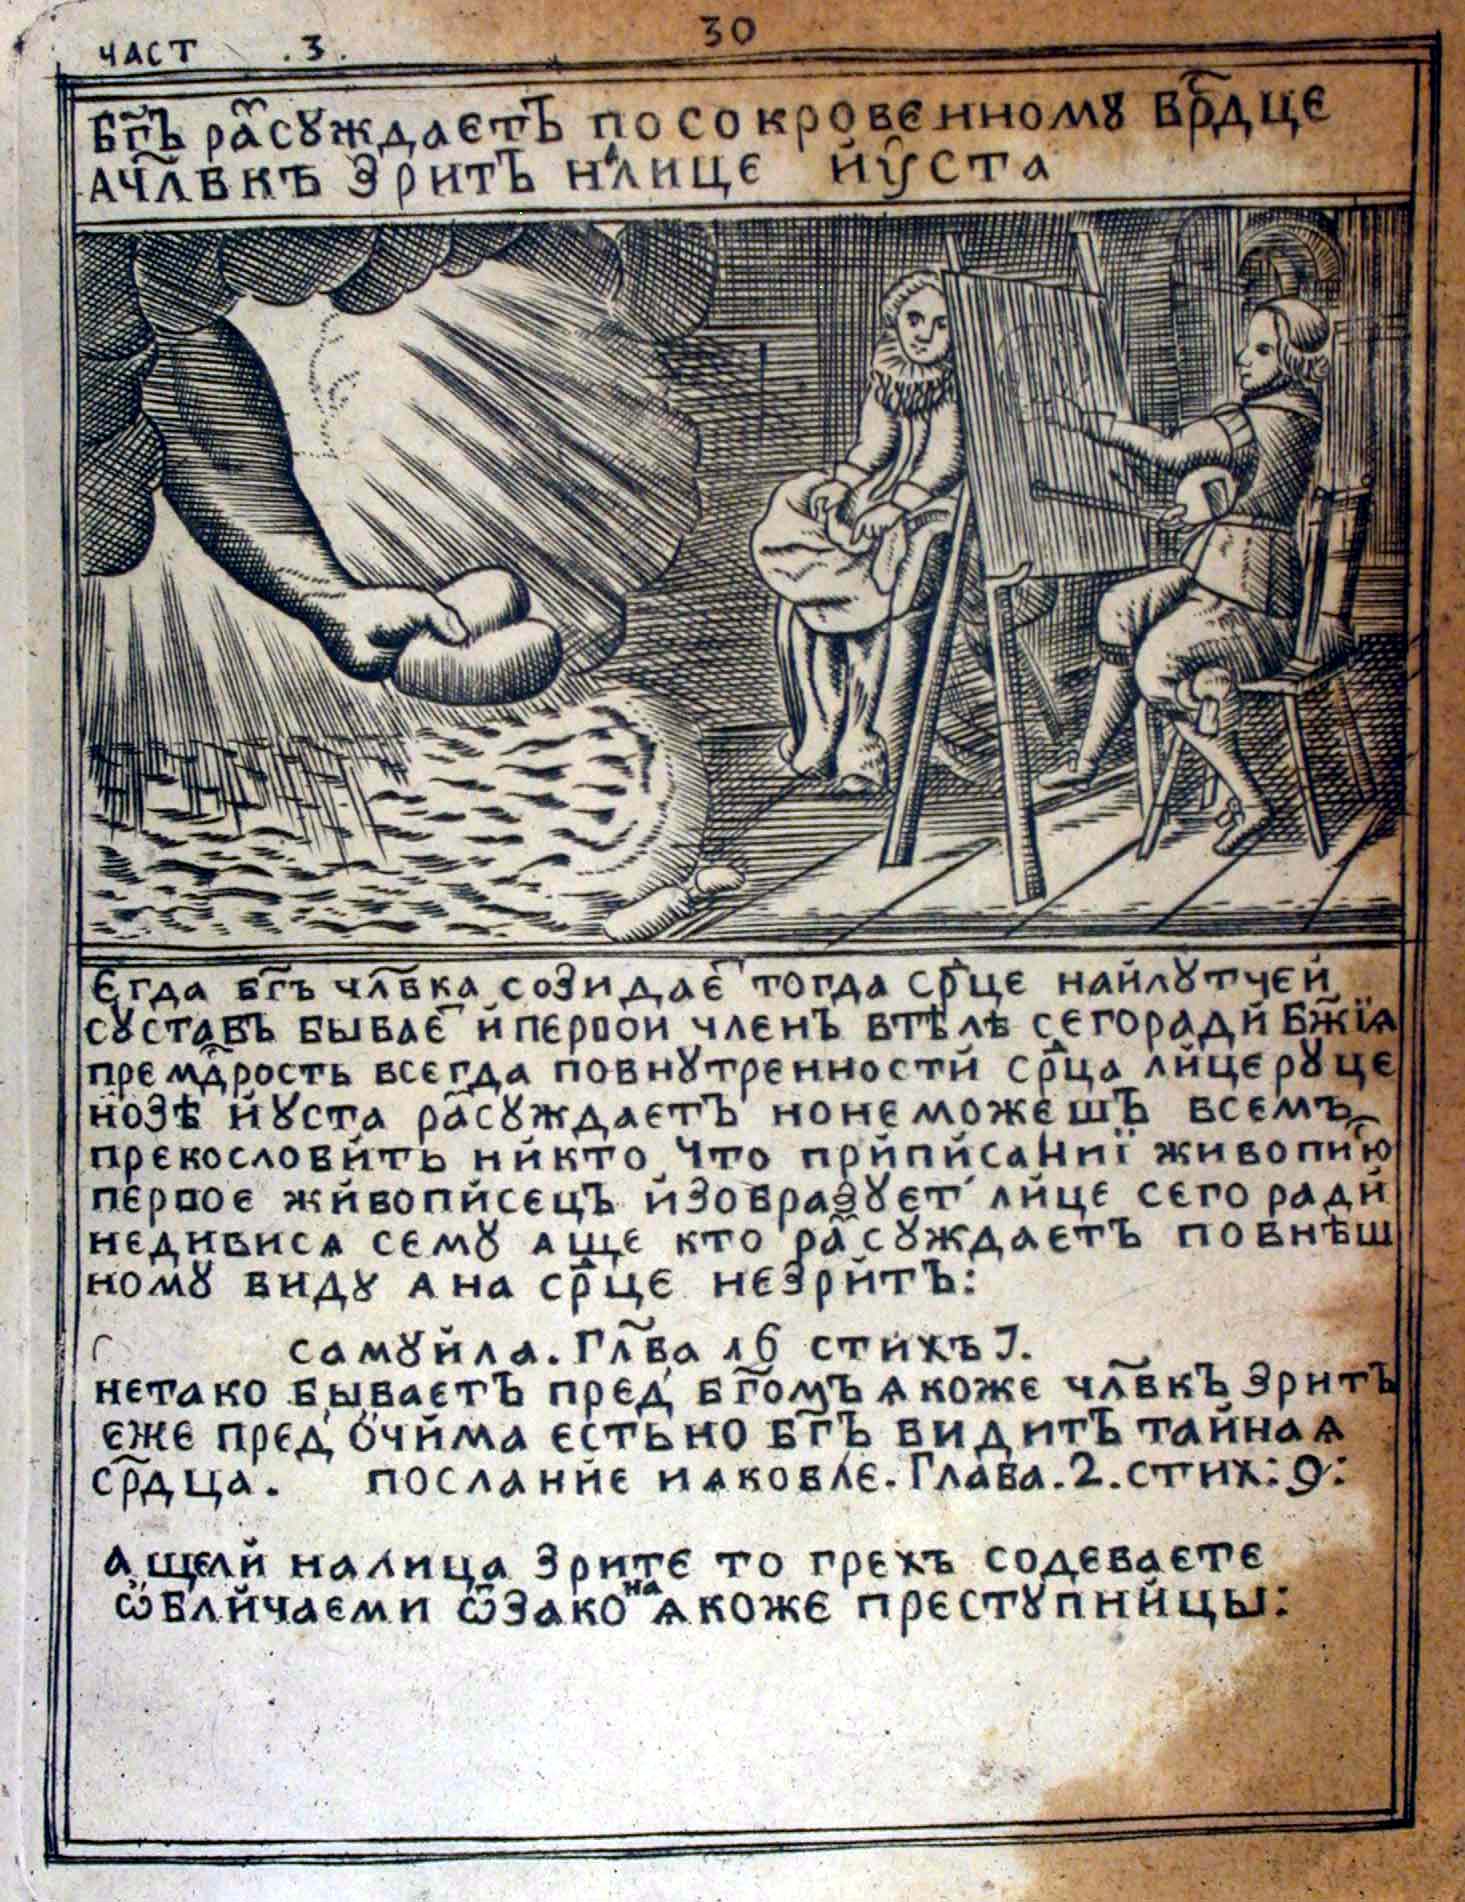 30
ЧАСТ .3.
Бг҃ъ ра҃сꙋждаетъ по сокровенномꙋ вр҃дце
А чл҃вкъ зритъ на лице й ꙋста
Єгда бг҃ъ чл҃вка созидає҃ тогда ср҃це найлꙋтчей
сꙋставъ быває҃ й первой членъ втѣлѣ сегоради бж҃їѧ
прем҃дрость всегда повнꙋтренности ср҃ца лице рꙋце
нозѣ й ꙋста ра҃сꙋждаетъ но не можешъ всемъ
прекословить никто что при писанпї живопи҃ю
первое живописецъ йзобразꙋет лице сего ради
недивисѧ семꙋ аще кто ра҃сꙋждаетъ повнѣш
номꙋ видꙋ а на ср҃це незритъ:
самꙋйла. Гл҃ва 16 стихъ 7.
нетако бываетъ пред бг҃омъ ѧкоже чл҃вкъ зритъ
еже пред очима есть но бг҃ъ видитъ тайнаѧ
ср҃дца. послание иаковле. Глава. 2. стих: 9:
Ащели на лица зрите то грехъ содеваете
ѡбличаеми ѿ закона ѧкоже престꙋпницы: